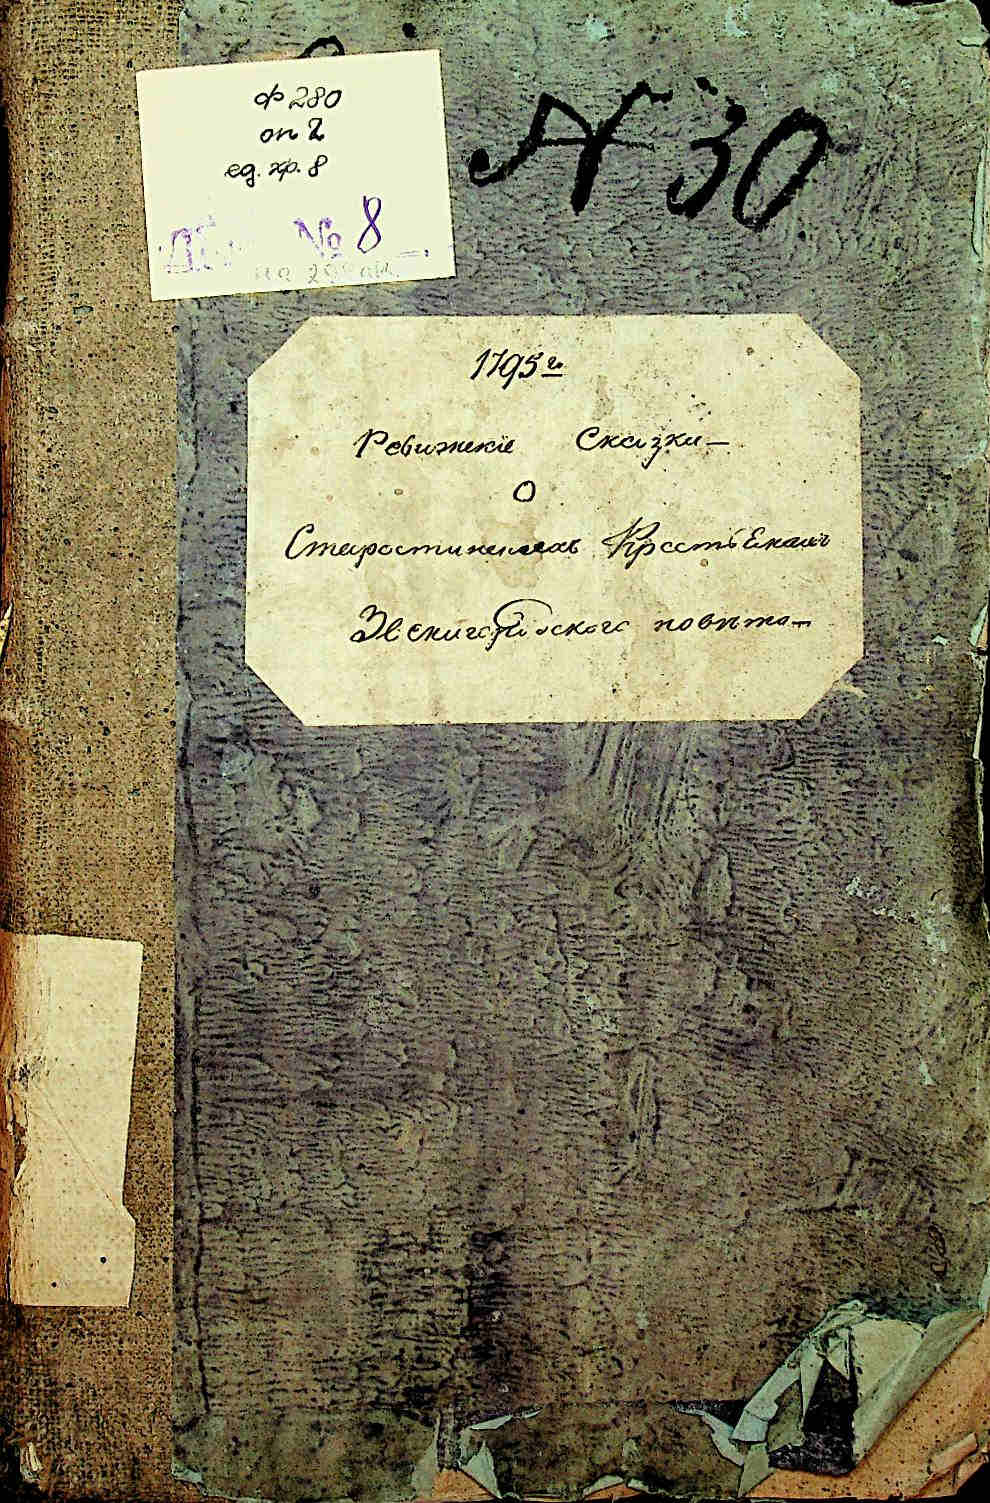 ф 280
оп 2
ед. хр. 8
№ 8
N 30
1795 г
Ревижскіе Сказки
О
Старостинскихъ Крестьянахъ
Звенигородского повѣта